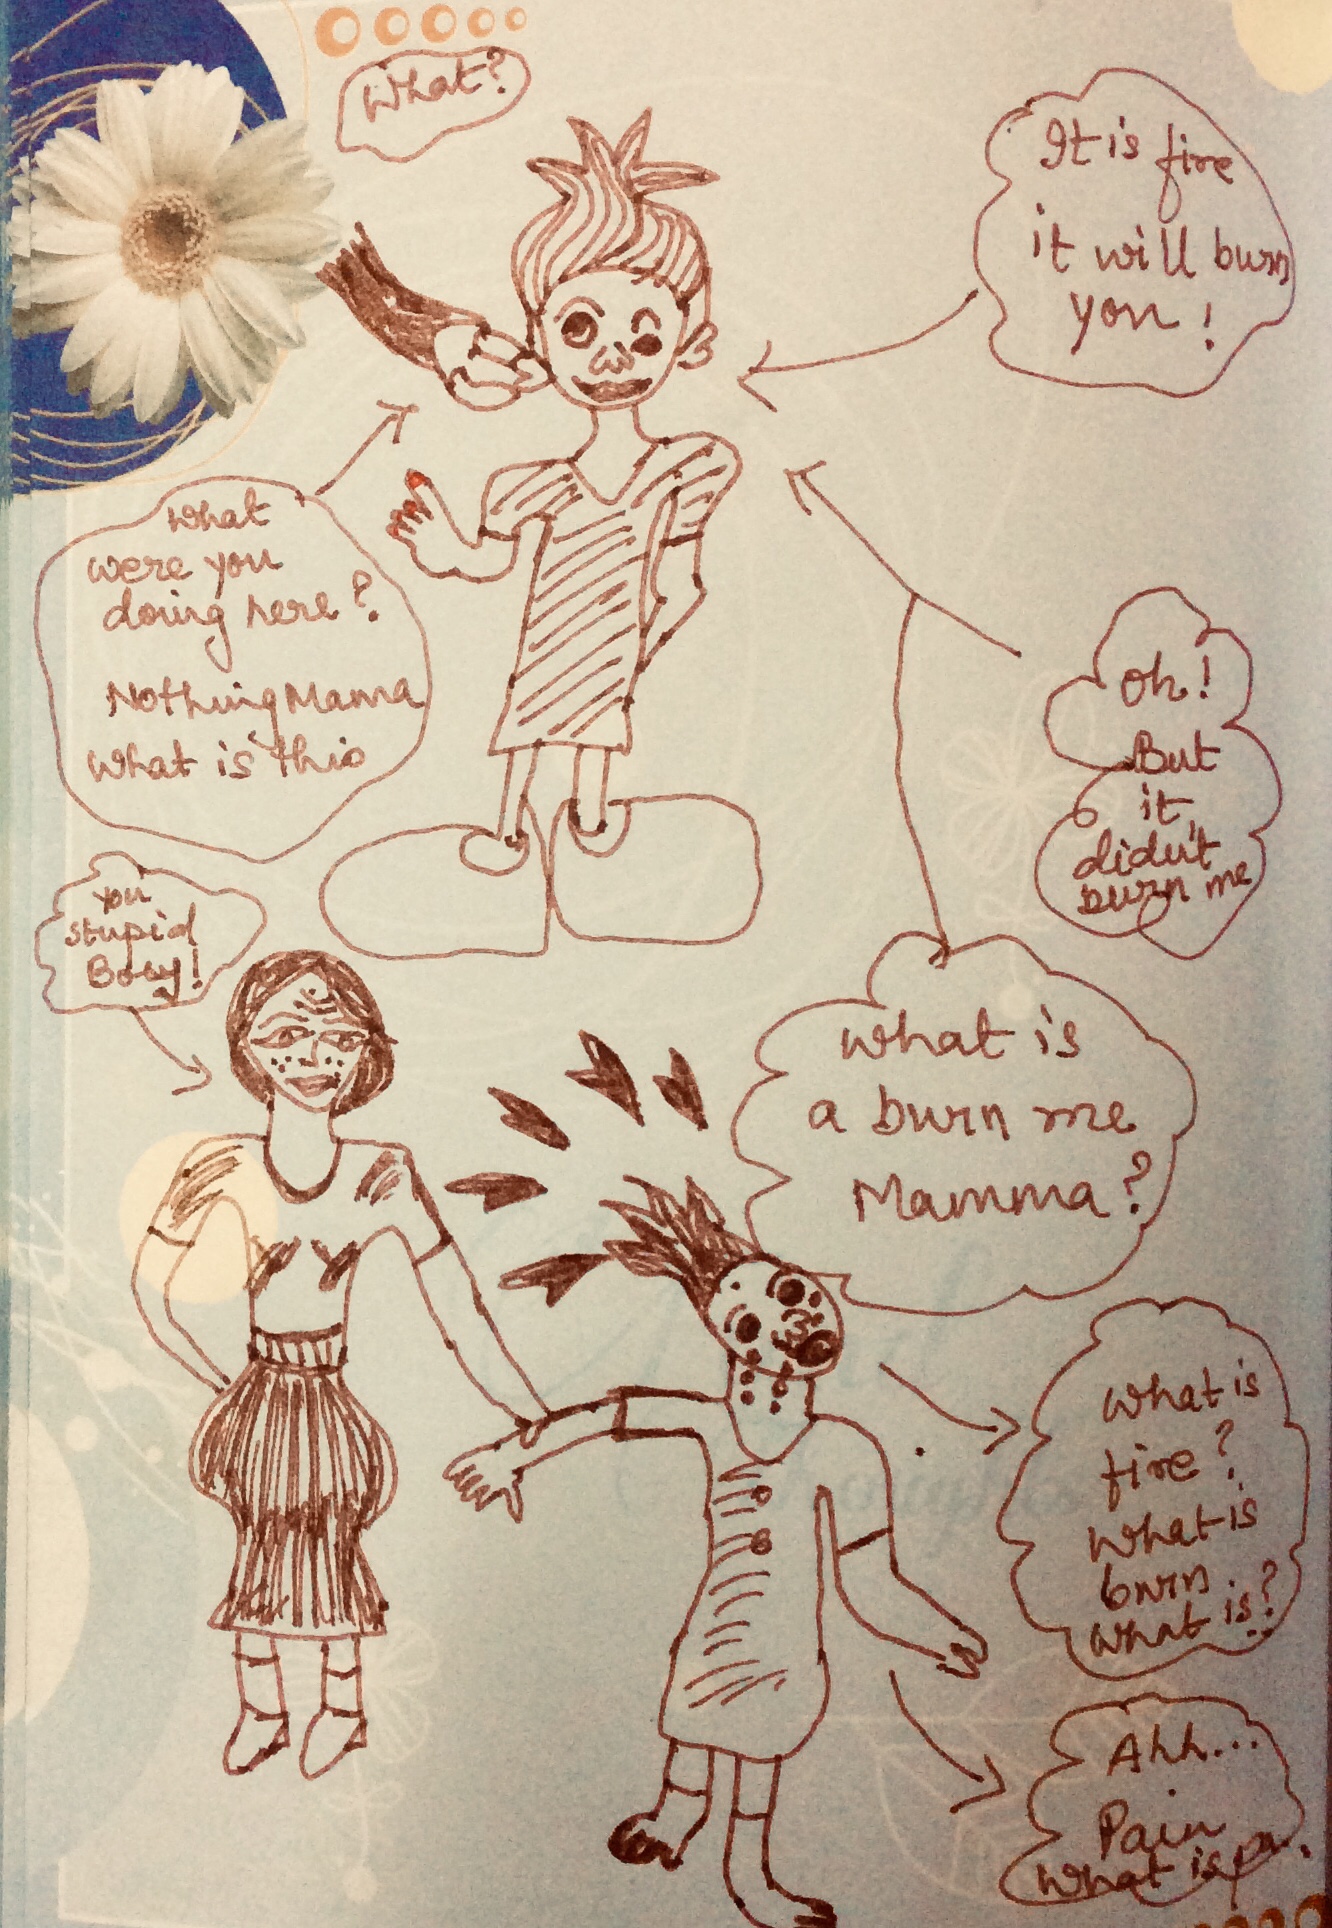 What?
It is fire
it will burn
you!
What
were you
doing here?
Nothing Mama
What is this
Oh!
But
it
didn't
burn me
You
stupid
Boey!
What is
a burn me
Mamma?
What is
fire?
What is
burn.
What is?
Ahh...
Pain
What is pa.